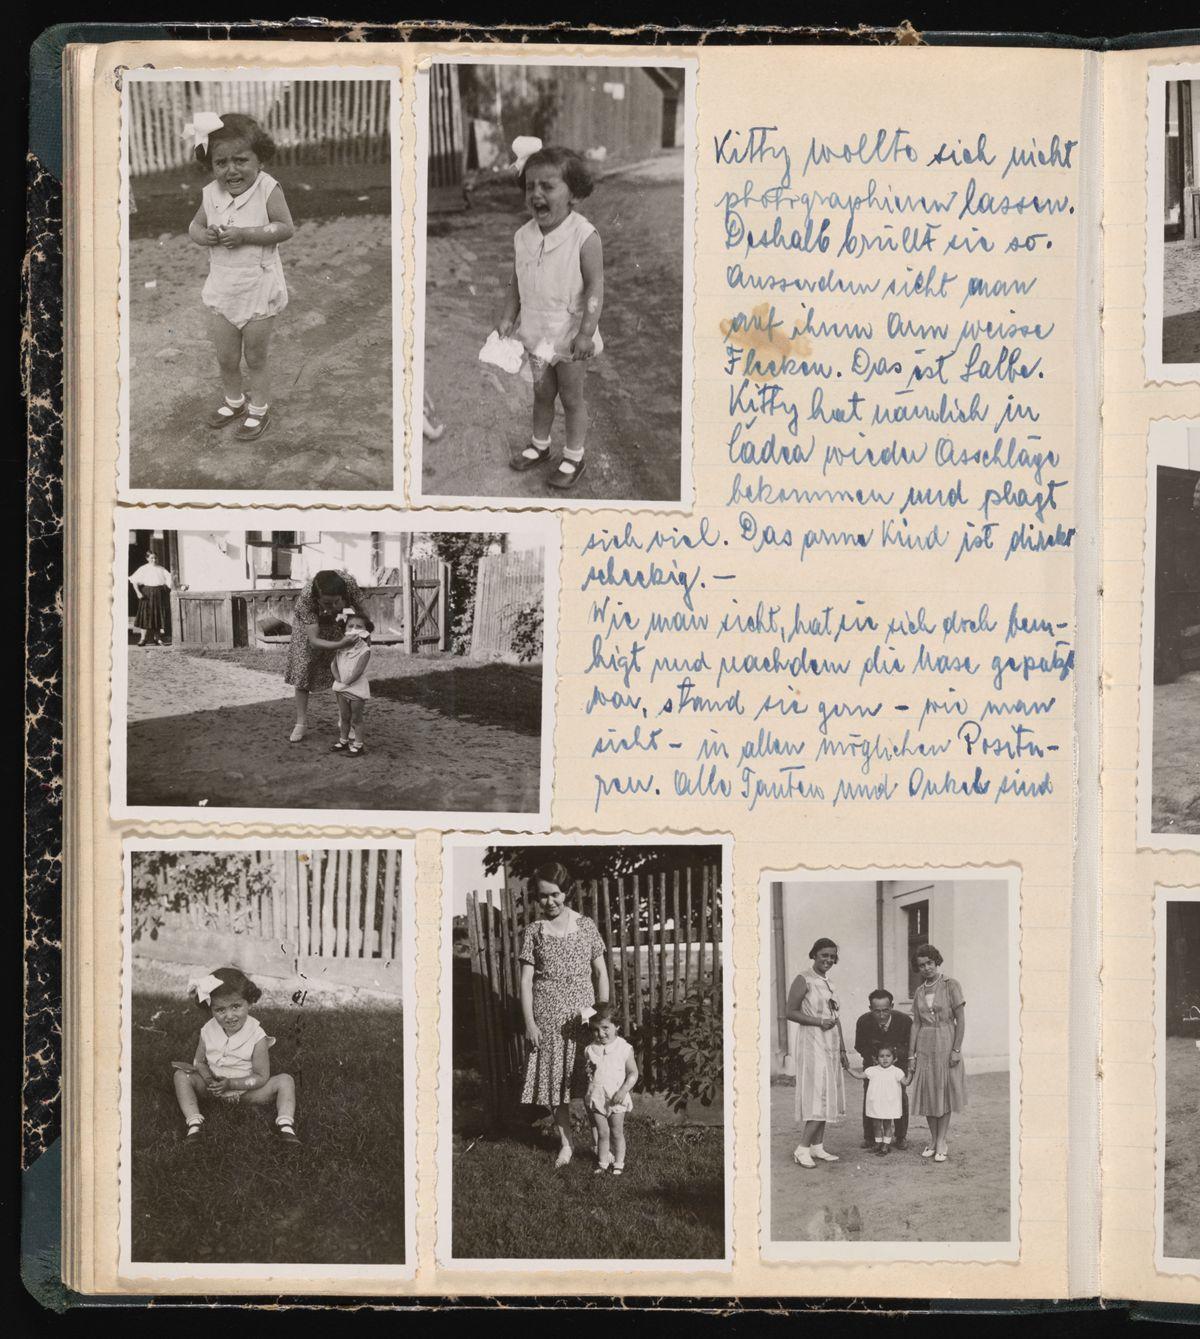 Kitty wollte sich nicht
photographieren lassen.
Deshalb brüllt sie so.
Ausserdem sieht man
auf ihrem Arm weisse
Flecken. Das ist Salbe.
Kitty hat nämlich in
wieder Ausschläge
bekommen und plagt
sich viel. Das arme Kind ist direkt
scheckig. —
Wie man sieht, hat sie sich doch beru-
higt und nachdem die Nase geputzt
war, stand sie gern – wie man
sieht – in allen möglichen Positu-
ren. Alle Tanten und Onkel sind